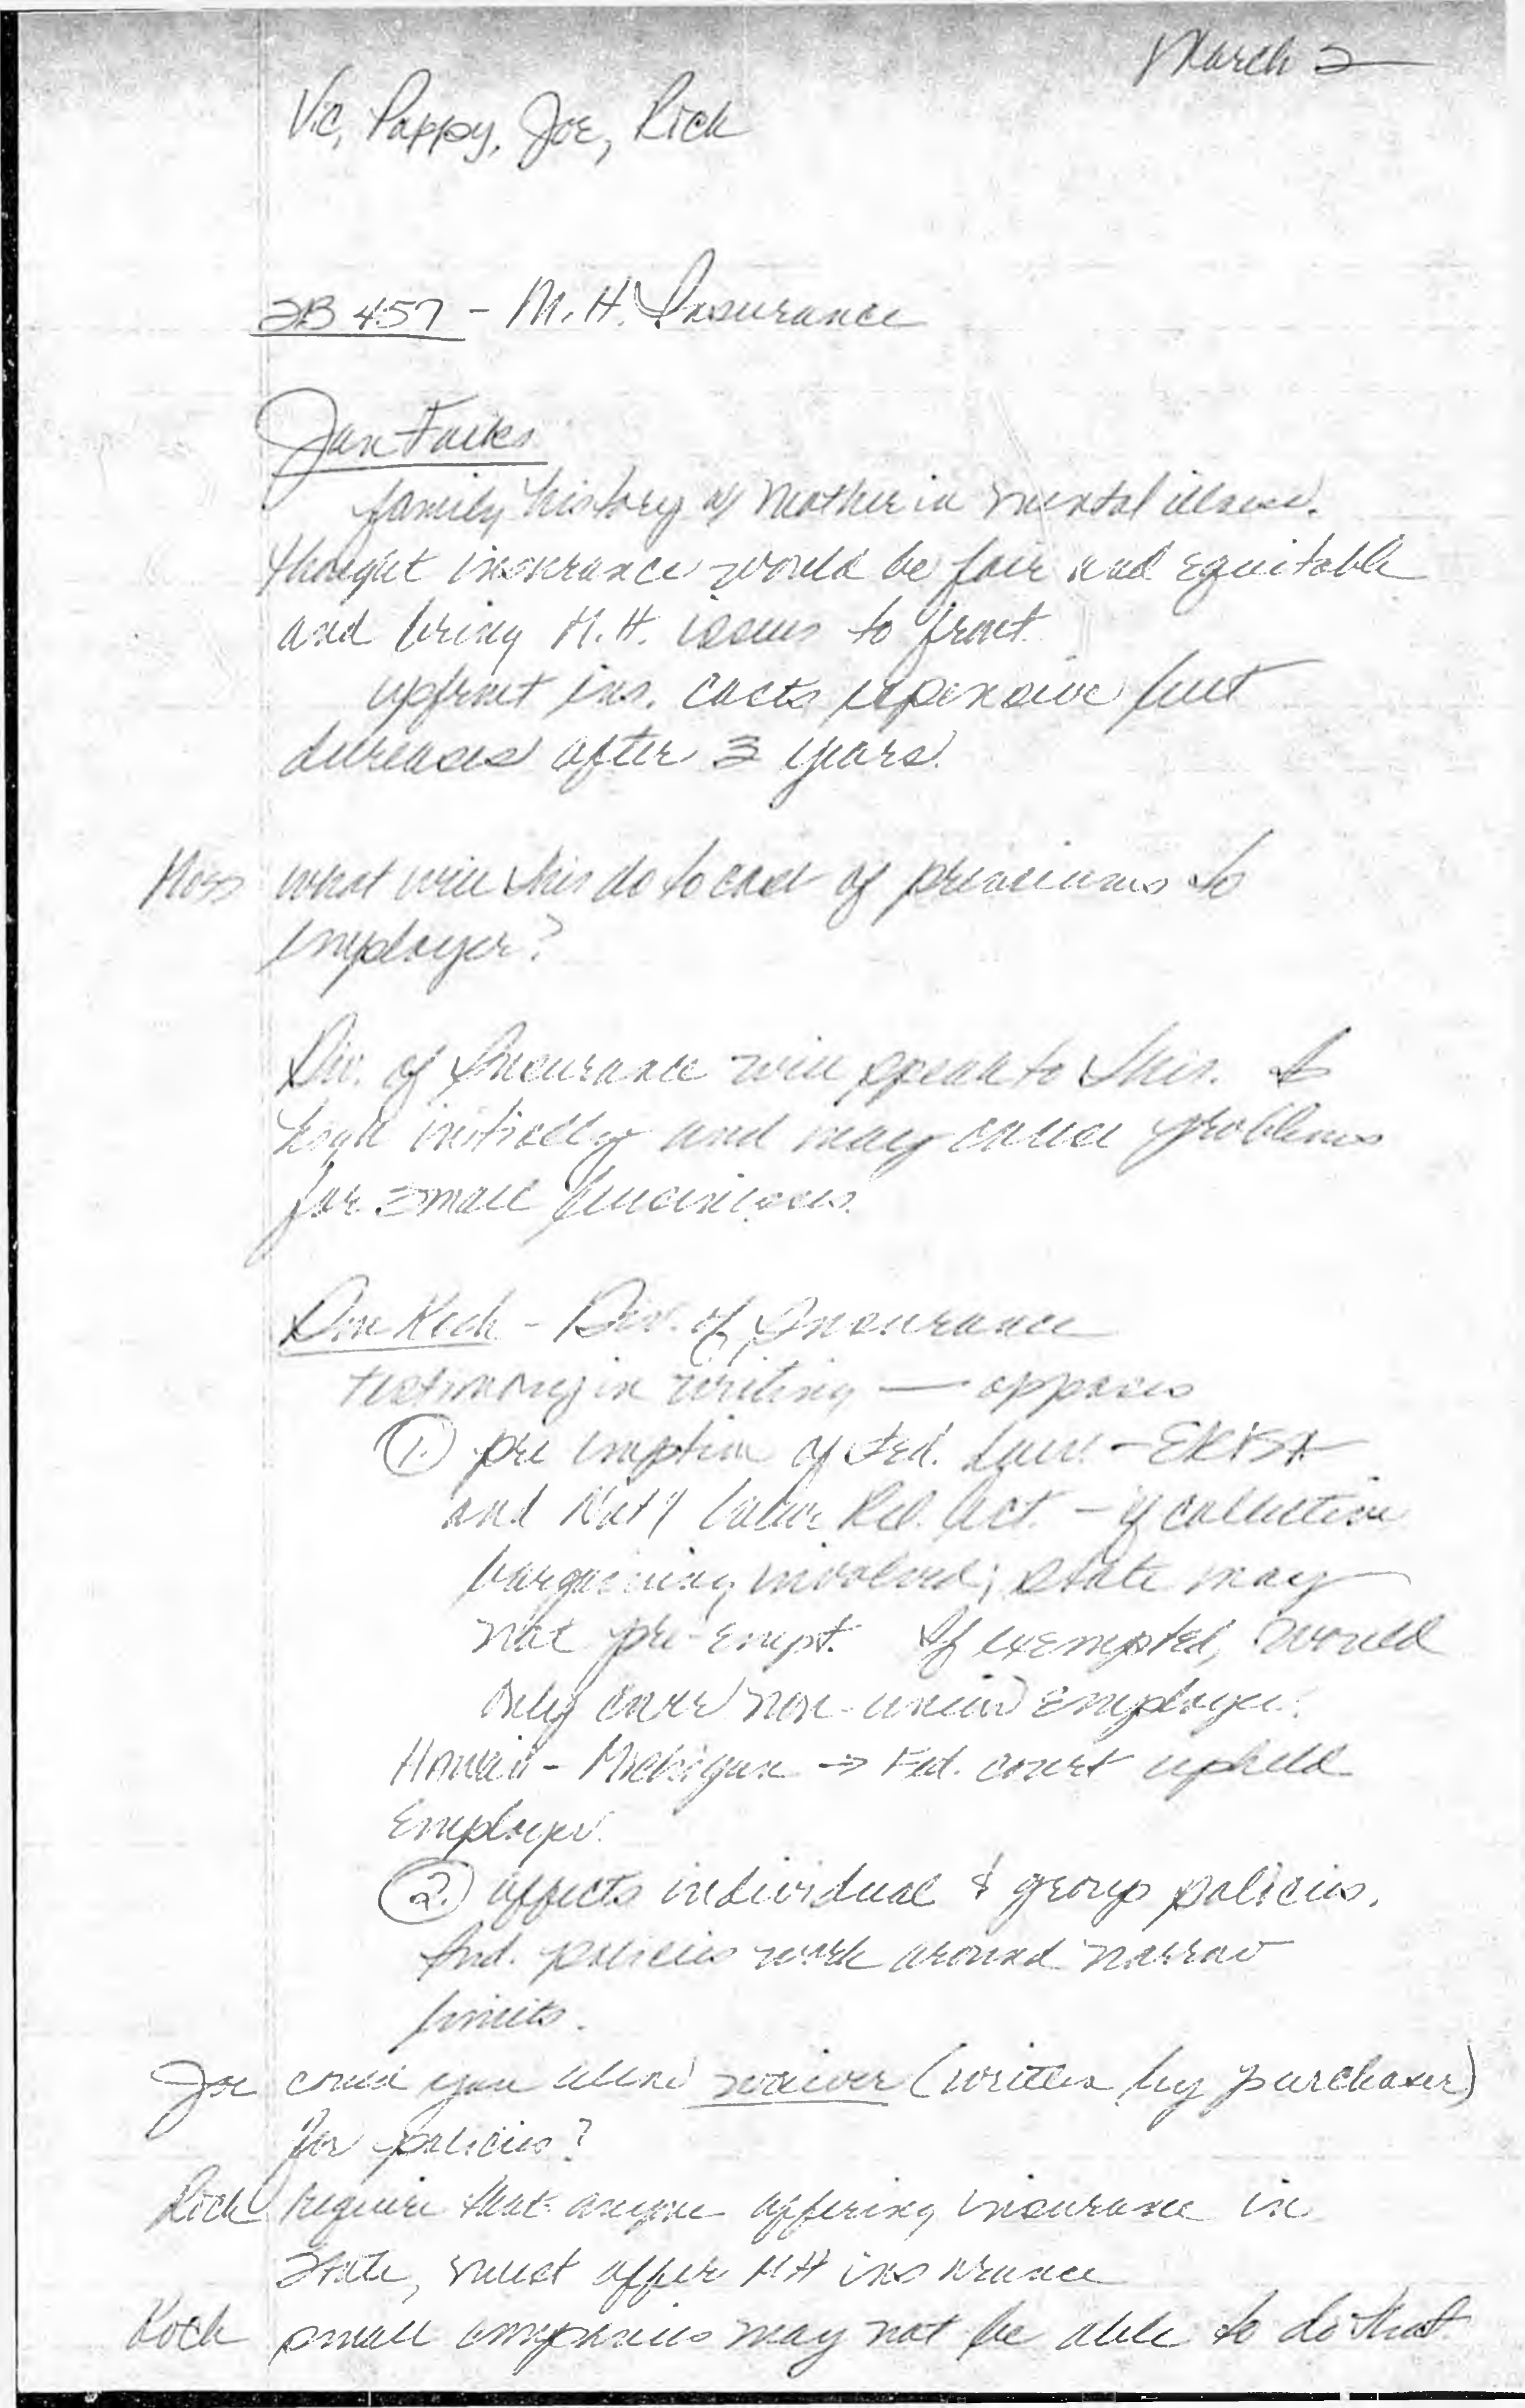 March 2
Vic, Pappy, Joe, Rick
SB 457 - M.H. Insurance
Jan Faiks
family history of mother in mental illness.
thought insurance would be fair and equitable
and bring M.H. issues to front.
upfront ins. costs expensive but
decreases after 3 years.
what will this do to cost of premiums to
employer?
Div. of Insurance will speak to this. Is
high initially and may cause problems
for small businesses.
Don Koch - Div. of Insurance
testimony in writing — opposes
1. pre emption of Fed. Law - ERISA
and Nat'l Labor Rel. Act. - if collective
bargaining involved; state may
not pre-empt. If exempted, would
only cover non-union employees.
Hawaii - Michigan → Fed. court upheld
employer.
2. affects individual & group policies.
Ind. policies work around narrow
limits.
Joe could you allow waiver (written by purchaser)
for policies?
Rick require that anyone offering insurance in
State, must offer MH insurance
Koch small companies may not be able to do that.